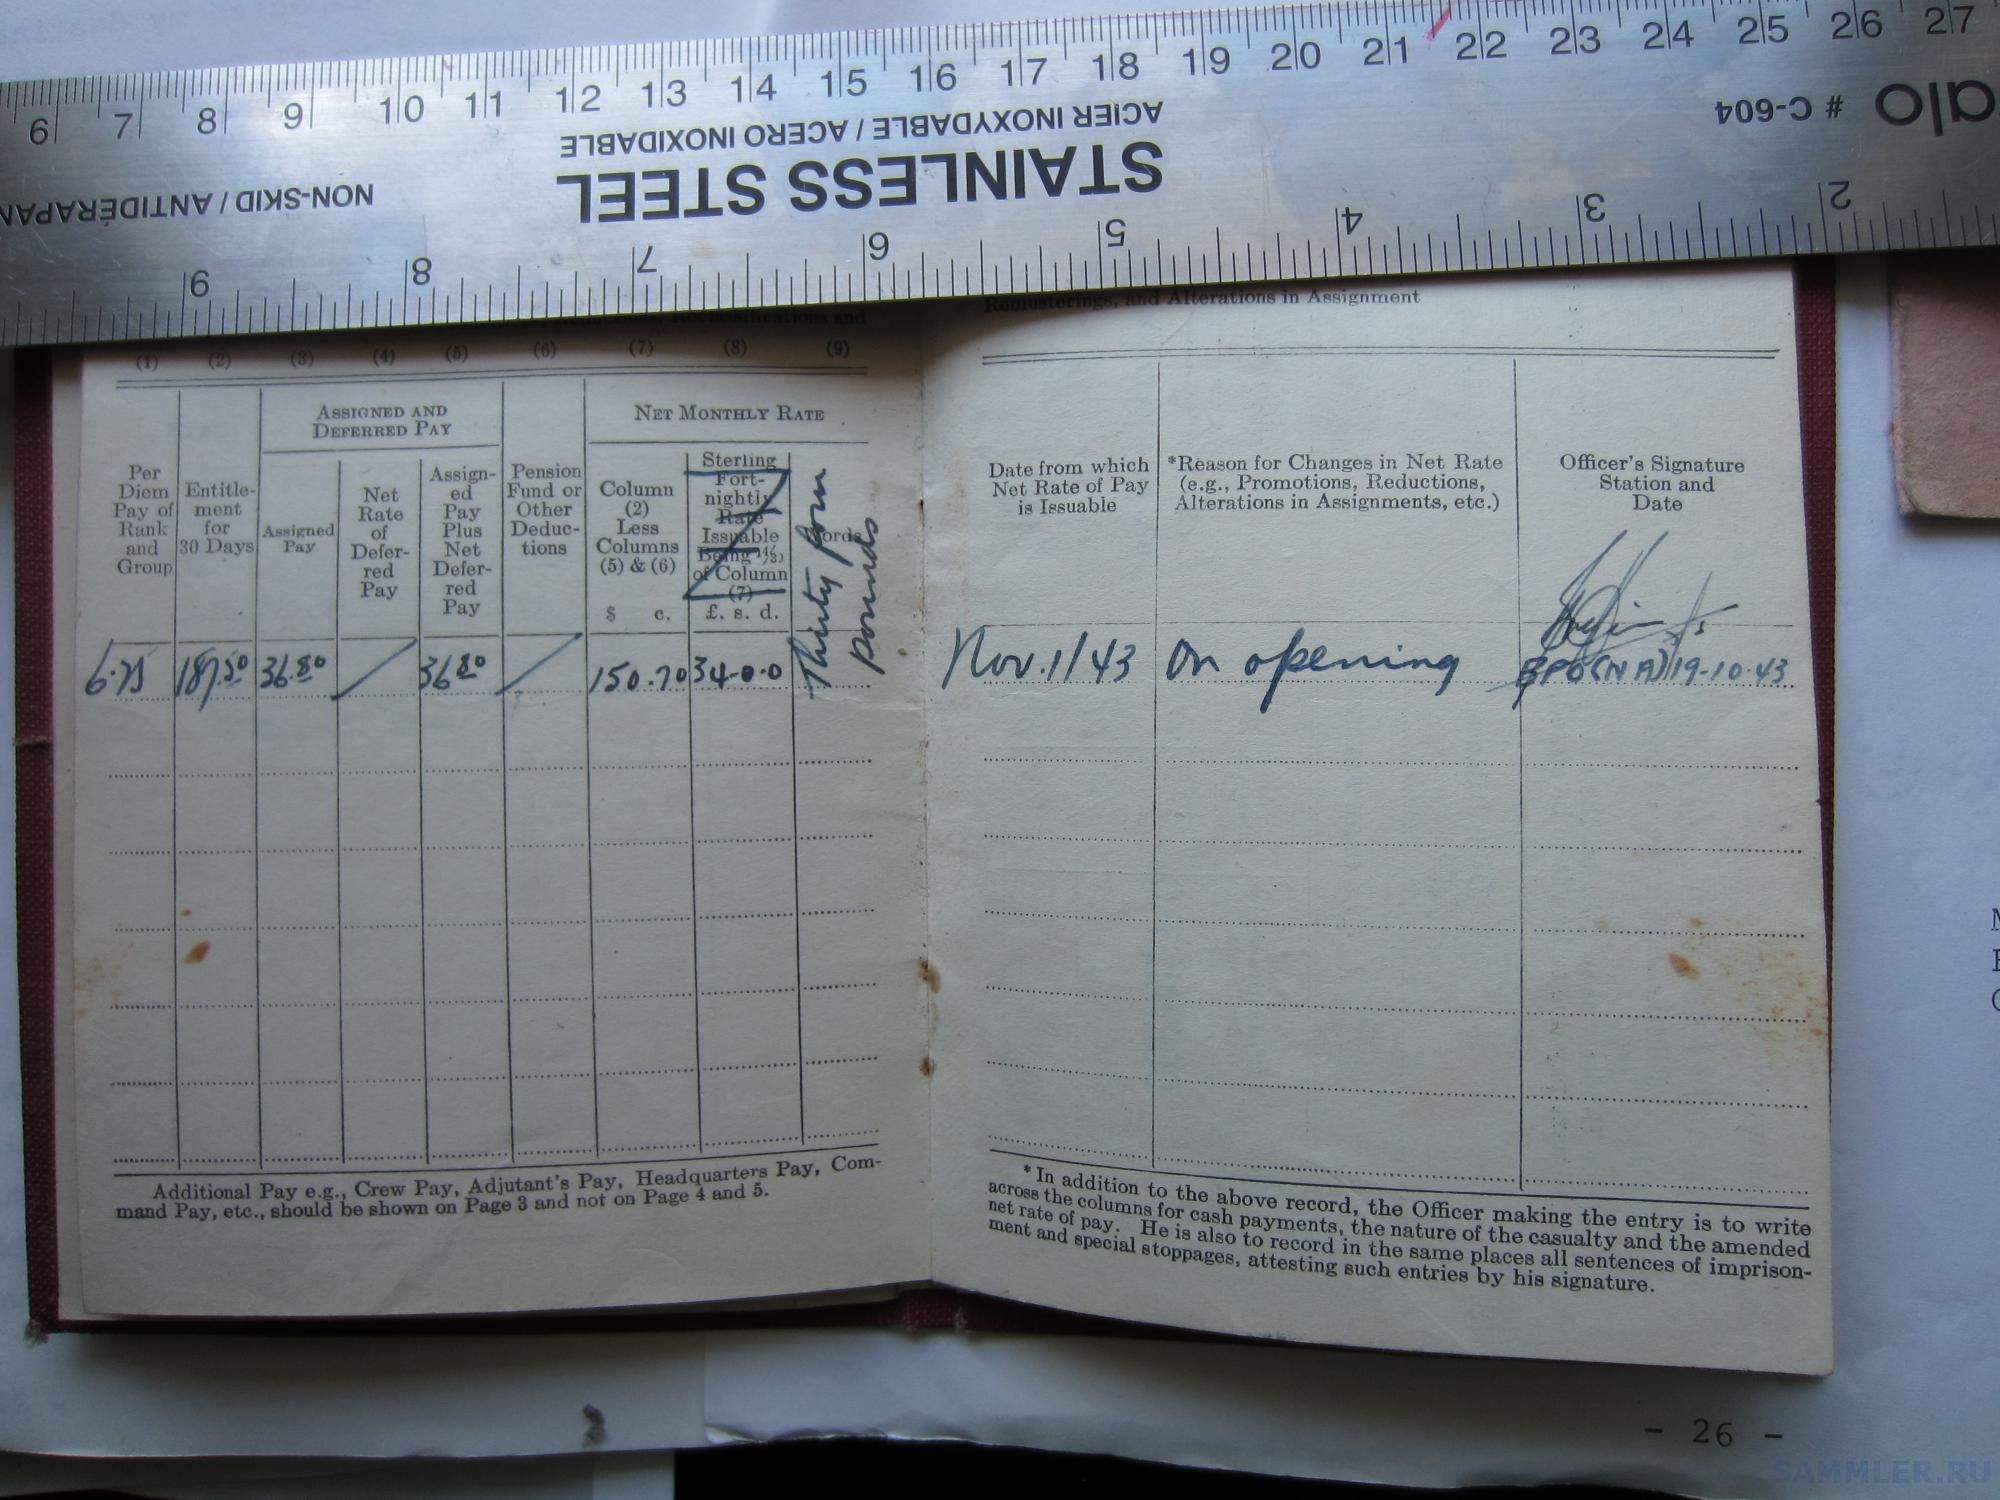 6 7 8 9 10 11 12 13 14 15 16 17 18 19 20 21 22 23 24 25 26 27
alo # C-604
ACIER INOXYDABLE / ACERO INOXIDABLE
STAINLESS STEEL
NON-SKID / ANTIDÉRAPAN
2 3 4 5 6 7 8 9
Reclassifications and
(1) (2) (3) (4) (5) (6) (7) (8) (9)
ASSIGNED AND
DEFERRED PAY
NET MONTHLY RATE
Per
Diem
Pay of
Rank
and
Group
Entitle-
ment
for
30 Days
Assigned
Pay
Net
Rate
of
Defer-
red
Pay
Assign-
ed
Pay
Plus
Net
Defer-
red
Pay
Pension
Fund or
Other
Deduc-
tions
Column
(2)
Less
Columns
(5) & (6)
$ c.
Sterling
Fort-
nightly
Rate
Issuable
Being 14/30
of Column
(7)
£. s. d.
Words
Thirty four
pounds
6.25 187.50 36.80 / 36.80 / 150.70 34-0-0
Additional Pay e.g., Crew Pay, Adjutant's Pay, Headquarters Pay, Com-
mand Pay, etc., should be shown on Page 3 and not on Page 4 and 5.
Remusterings, and Alterations in Assignment
Date from which
Net Rate of Pay
is Issuable
*Reason for Changes in Net Rate
(e.g., Promotions, Reductions,
Alterations in Assignments, etc.)
Officer's Signature
Station and
Date
Nov. 1/43 On opening BPO(NA) 19-10-43
* In addition to the above record, the Officer making the entry is to write
across the columns for cash payments, the nature of the casualty and the amended
net rate of pay. He is also to record in the same places all sentences of imprison-
ment and special stoppages, attesting such entries by his signature.
- 26 -
SAMMLER.RU